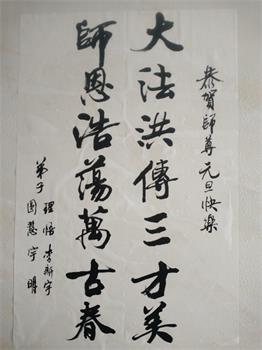 恭賀師尊元旦快樂
大法洪傳三才美
師恩浩蕩萬古春
弟子
理悟 李新宇
圓慧 宇明